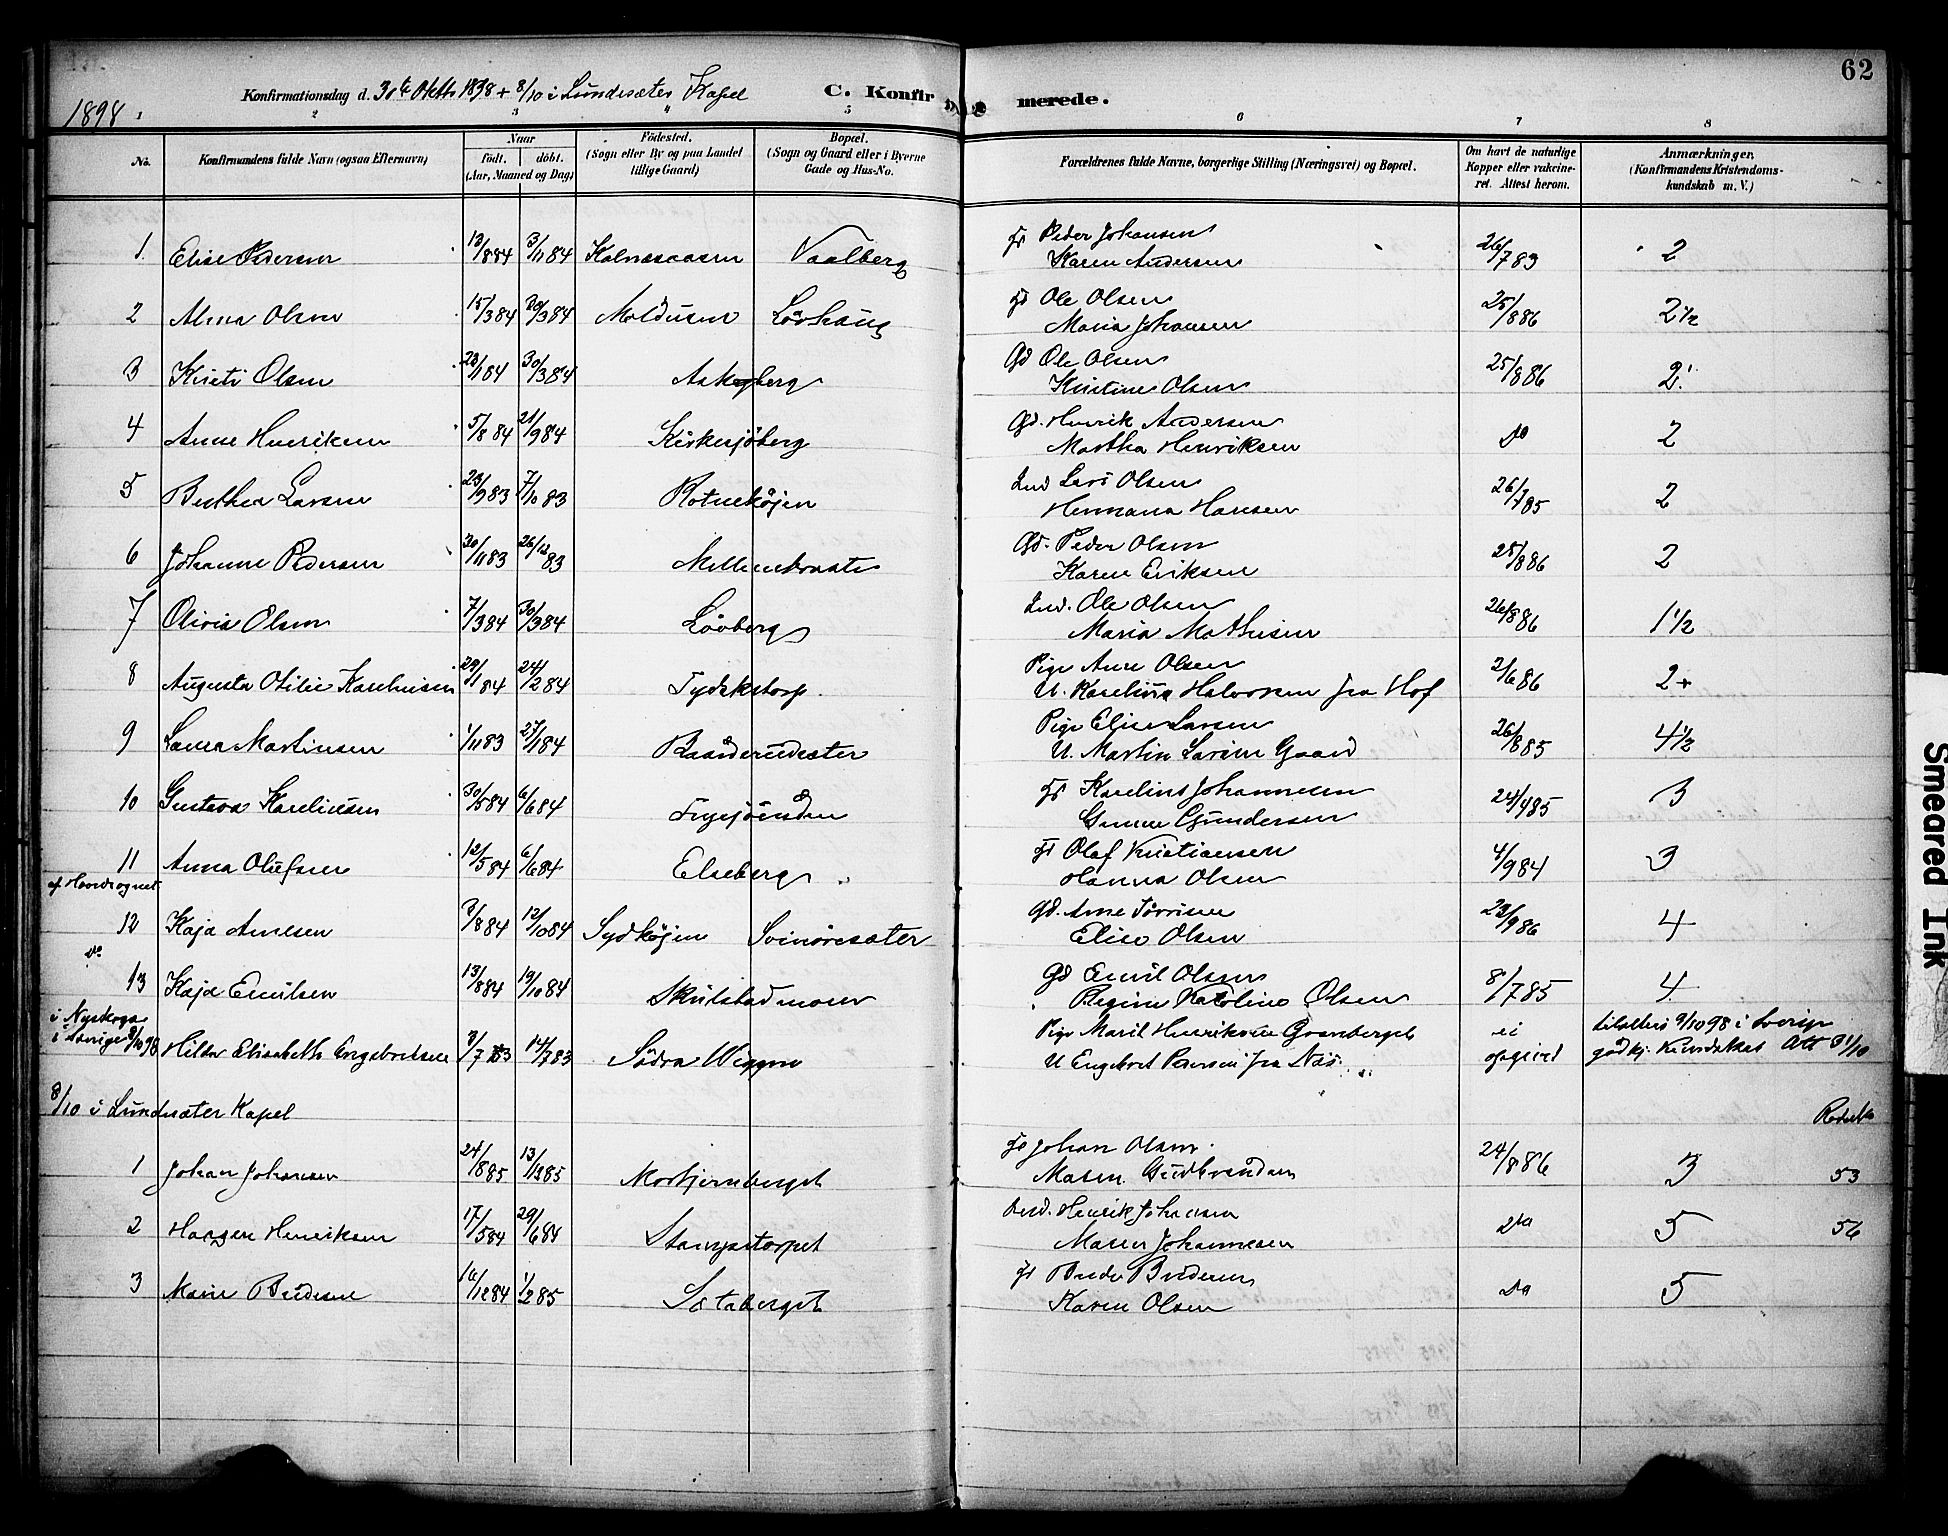 62
1898
Konfirmationsdag d. 30te Oktb 1898 + 8/10 i Lundesæter Kapel
C. Konfirmerede.
2 3 4 5 6 7 8
No. Konfirmandens fulde Navn (ogsaa Efternavn) Naar født. døbt. (Aar, Maaned og Dag) Fødested. (Sogn eller By og paa Landet tillige Gaard) Bopæl. (Sogn og Gaard eller i Byerne Gade og Hus-No. Forældrenes fulde Navne, borgerlige Stilling (Næringsvei) og Bopæl. Om havt de naturlige Kopper eller vakcineret. Attest herom. Anmærkninger, (Konfirmandens Kristendomskundskab m. V.)
1. Elise Pedersen 13/8 84 3/11 84 Kalnæsaasen Vaalberg Fs Peder Johansen 26/7 89 2
Karen Andersen
2 Alma Olsen 15/3 84 30/3 84 Moldusen Løvhaug Ole Olsen 25/8 86 2 1/2
Maria Johansen
3 Kristi Olsen 28/1 84 30/3 84 Askogberg Gd Ole Olsen 25/8 86 2
Kristine Olsen
4 Anne Henriksen 5/8 84 21/9 84 Kirkesjøberg Gd. Henrik Andersen do 2
Martha Henriksen
5 Berthea Larsen 23/9 83 7/10 83 Rotnekøjen Ind Lars Olsen 26/7 85 2
Hermana Hansen
6 Johanne Pedersen 30/11 83 26/12 83 Gd. Peder Olsen 25/8 86 2
Karen Eriksen
7 Olivia Olsen 7/3 84 30/3 84 Løvberg Ind. Ole Olsen 26/8 86 1 1/2
Maria Mathisen
8 Augusta Otilie Karelinsen 29/1 84 24/2 84 Tydskstorp. Pige Anne Olsen 2/6 86 2+
U. Karelius Halvorsen fra Hof
9 Laura Martinsen 1/11 83 27/1 84 Baarderudsæter Pige Elise Larsen 26/8 85 4 1/2
U. Martin Larsen Gaard
10 Gustava Karelinsen 30/5 84 6/6 84 Frysjøenden Fs Karelius Johannesen 24/4 85 3
Gunnar Gundersen
11 Anna Olufsen 12/5 84 6/6 84 Elseberg. Fs Olaf Kristiansen 4/9 84 3
af Hovedsognet Hanna Olsen
12 Kaja Arnesen 3/8 84 12/10 84 Sydkøjen Svinøresæter Gd. Arne 23/9 86 4
do Elise Olsen
13 Kaja Emilsen 13/8 84 19/10 84 Skulstadmoen Gd Emil Olsen 8/7 85 4
Regine Karoline Olsen
i Nyskoga i Sverige 9/10 98 Hilda Elisabeth Engebretsen 3/7 83 14/7 83 Södra Viggen Pige Marit Henriksen Granberget ei opgived tilaters 9/10 98 i Sverige
U Engebret Pedersen fra Näs. godkj. Kundskab Att 31/10
8/10 i Lundesæter Kapel
1 Johan Johansen 24/8 85 13/12 85 Mortjernberget Fs Johan Olsen 24/8 86 3 53
Maren Gudbrandsen
2 Haagen Henriksen 17/5 84 29/6 84 Stampetorpet Ind. Henrik Johansen do 5 56
Maren Johannesen
3 Marie Bredesen 16/12 84 1/2 85 Sætaberget Fs Brede Bredesen do 5
Karen Olsen
Smeared Ink